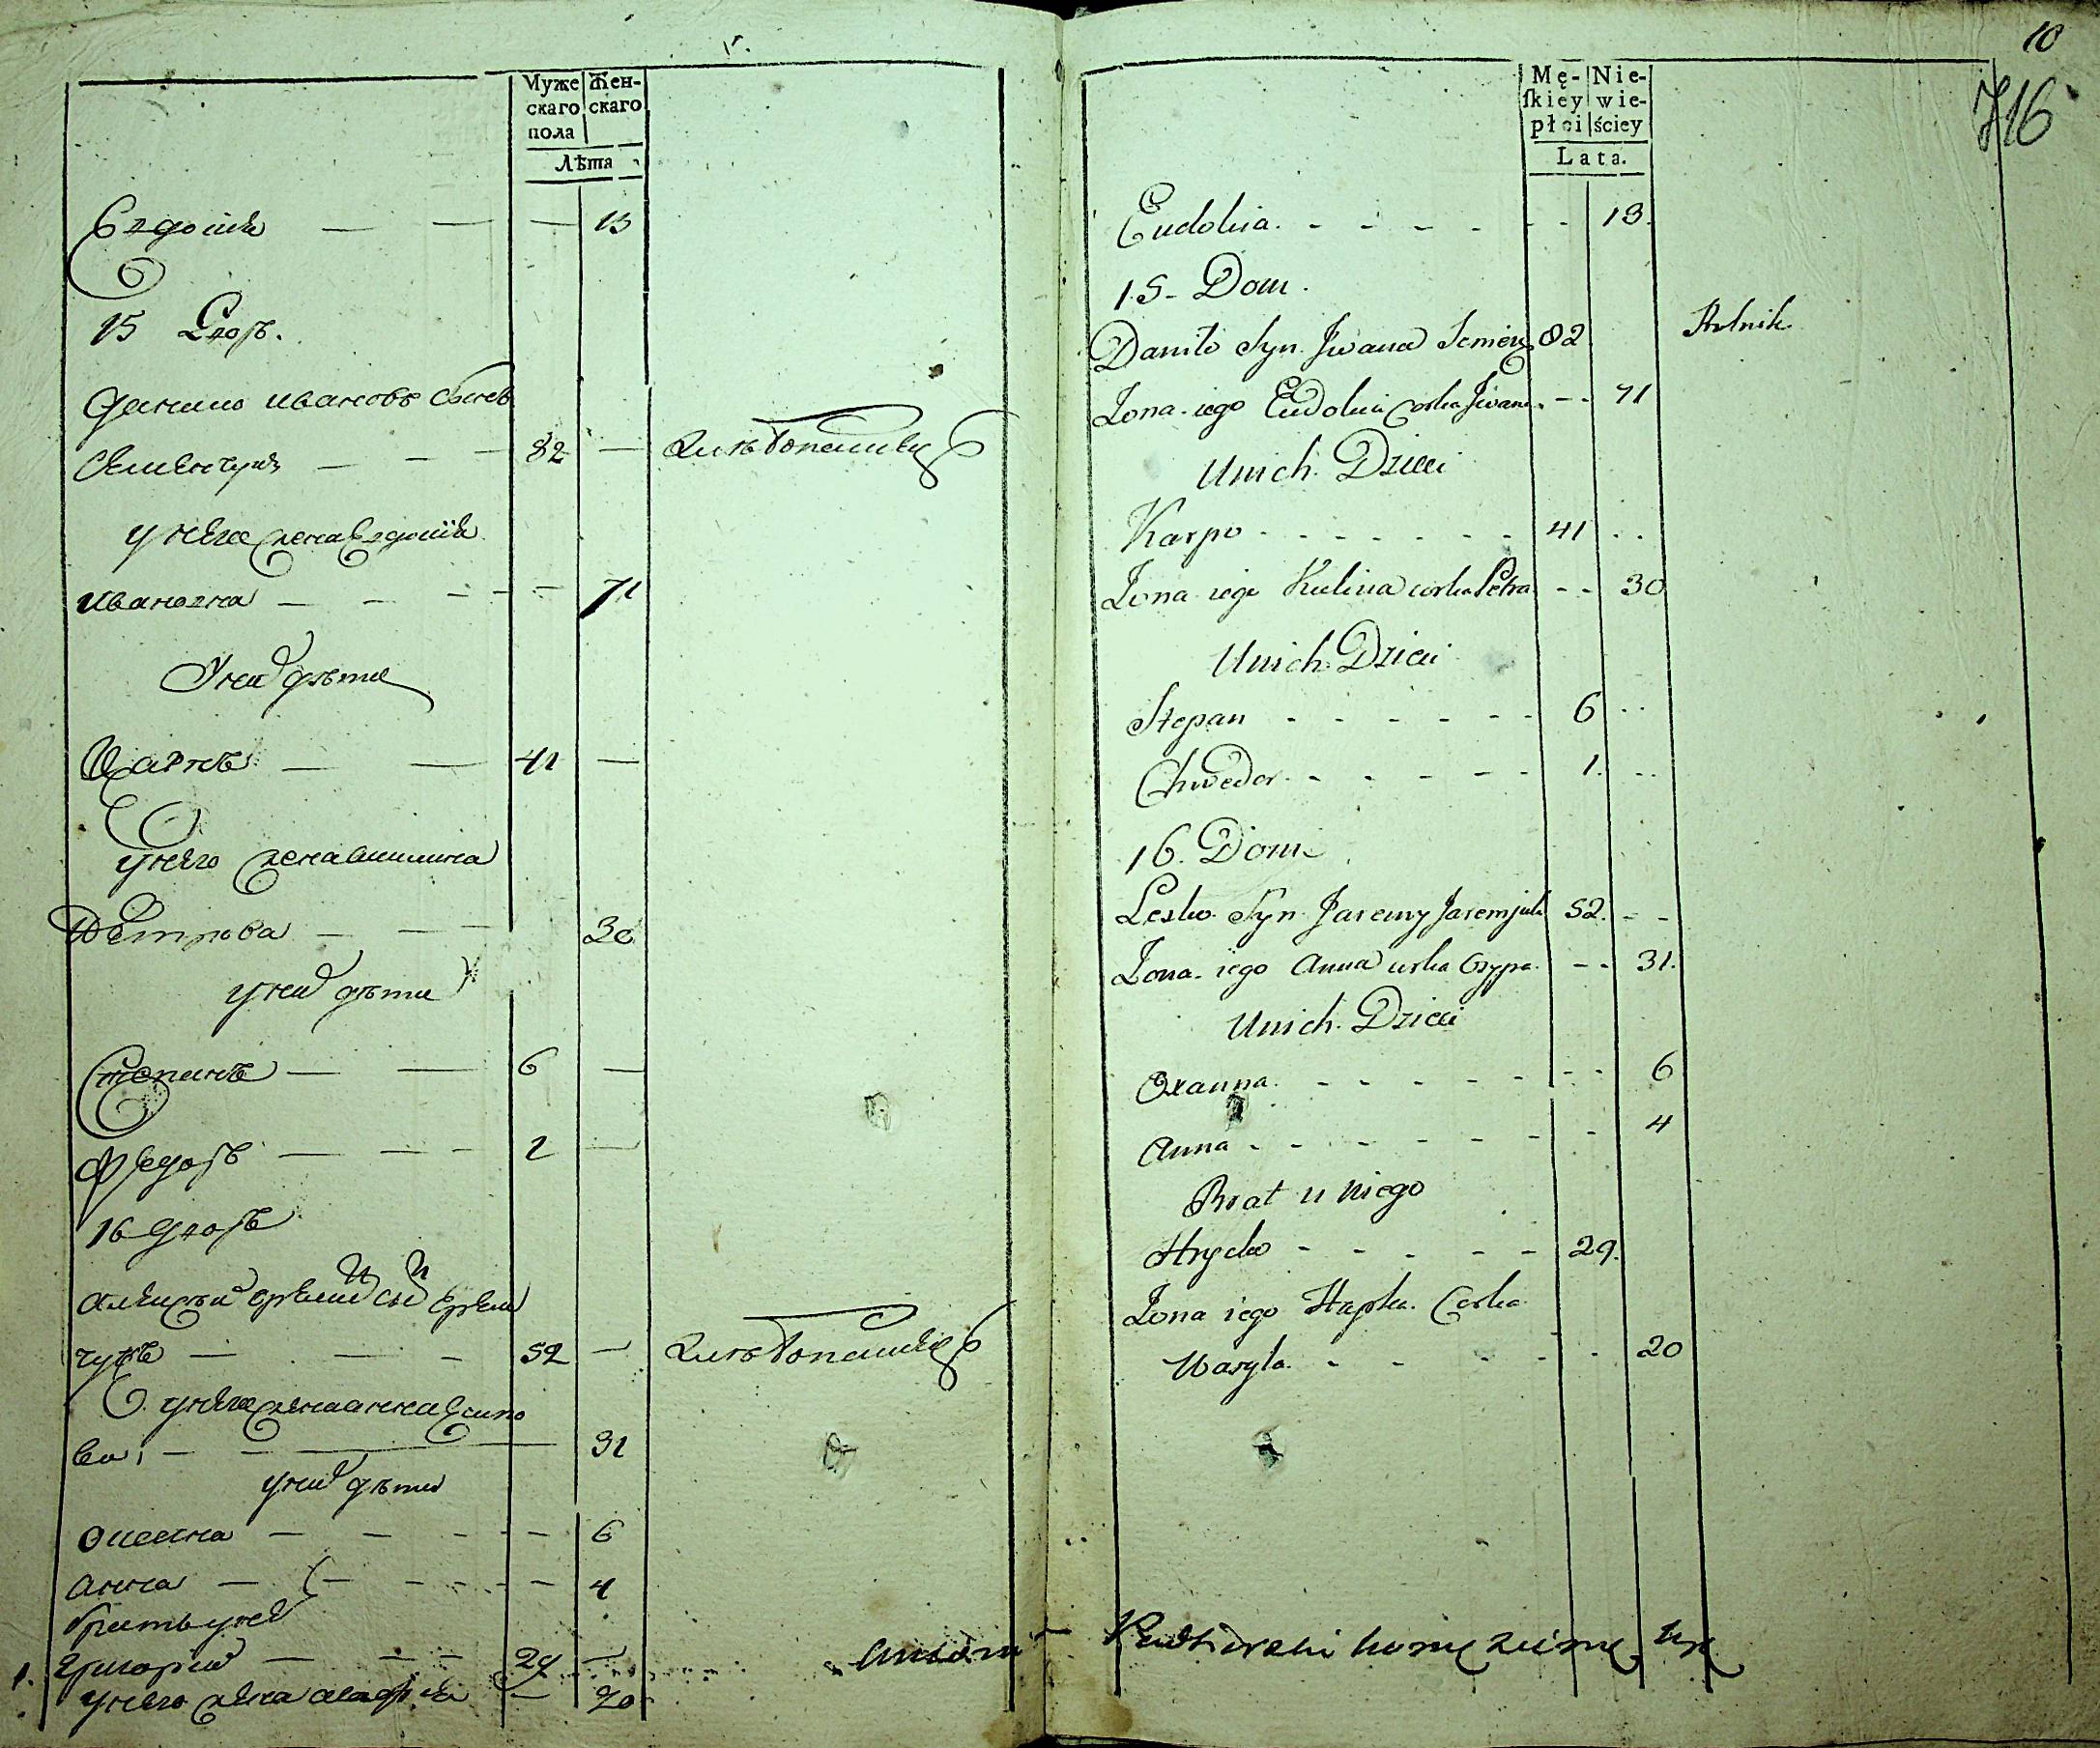 Муже Жен-
скаго скаго
пола
Лѣта
Евдокіѧ — — — 13
15 Дворъ.
Данило Ивановъ сынъ
Семенчукъ — — — 82 — Хлѣбопашецъ
у него жена Евдокіѧ
Иванова — — — — 71
У них дѣти
Карпъ — — 41 —
у него жена Акилина
Петрова — — — 30
у них дѣти
Степанъ — — 6 —
Федоръ — — — 1 —
16 Дворъ
Алексѣй Еремии сы Ерем
чукъ — — — 52 — Хлѣбопашецъ
у него жена Анна Есипо
ва — — 31
у них дѣти
Оксанна — — — — 6
Анна — — — — 4
братъ у нег
Григорий — — — 29 —
у него жена Агафиѧ — 20
10
716
Mę- Nie-
skiey wie-
płci ściey
Lata.
Eudokia. - - - - - - 13.
15 - Dom.
Daniło Syn Jwana Semen 82 Rolnik
Zona iego Eudokia corka Jwana - - 71
U nich Dzieci
Karpo - - - - - - 41 - -
Zona iego Kulina corka Petra - - 30
U nich Dzieci
Stepan - - - - - - 6 - -
Chwedor - - - - - 1. - -
16. Dom
Lesko Syn Jaremy Jaremjuk 52. - -
Zona iego Anna corka Osypa - - 31.
U nich Dzieci
Oxanna. - - - - - - - 6
Anna - - - - - - - 4
Brat u niego
Hrycko - - - - - 29.
Zona iego Hapka Corka
Wasyla. - - - - - 20
Antoni